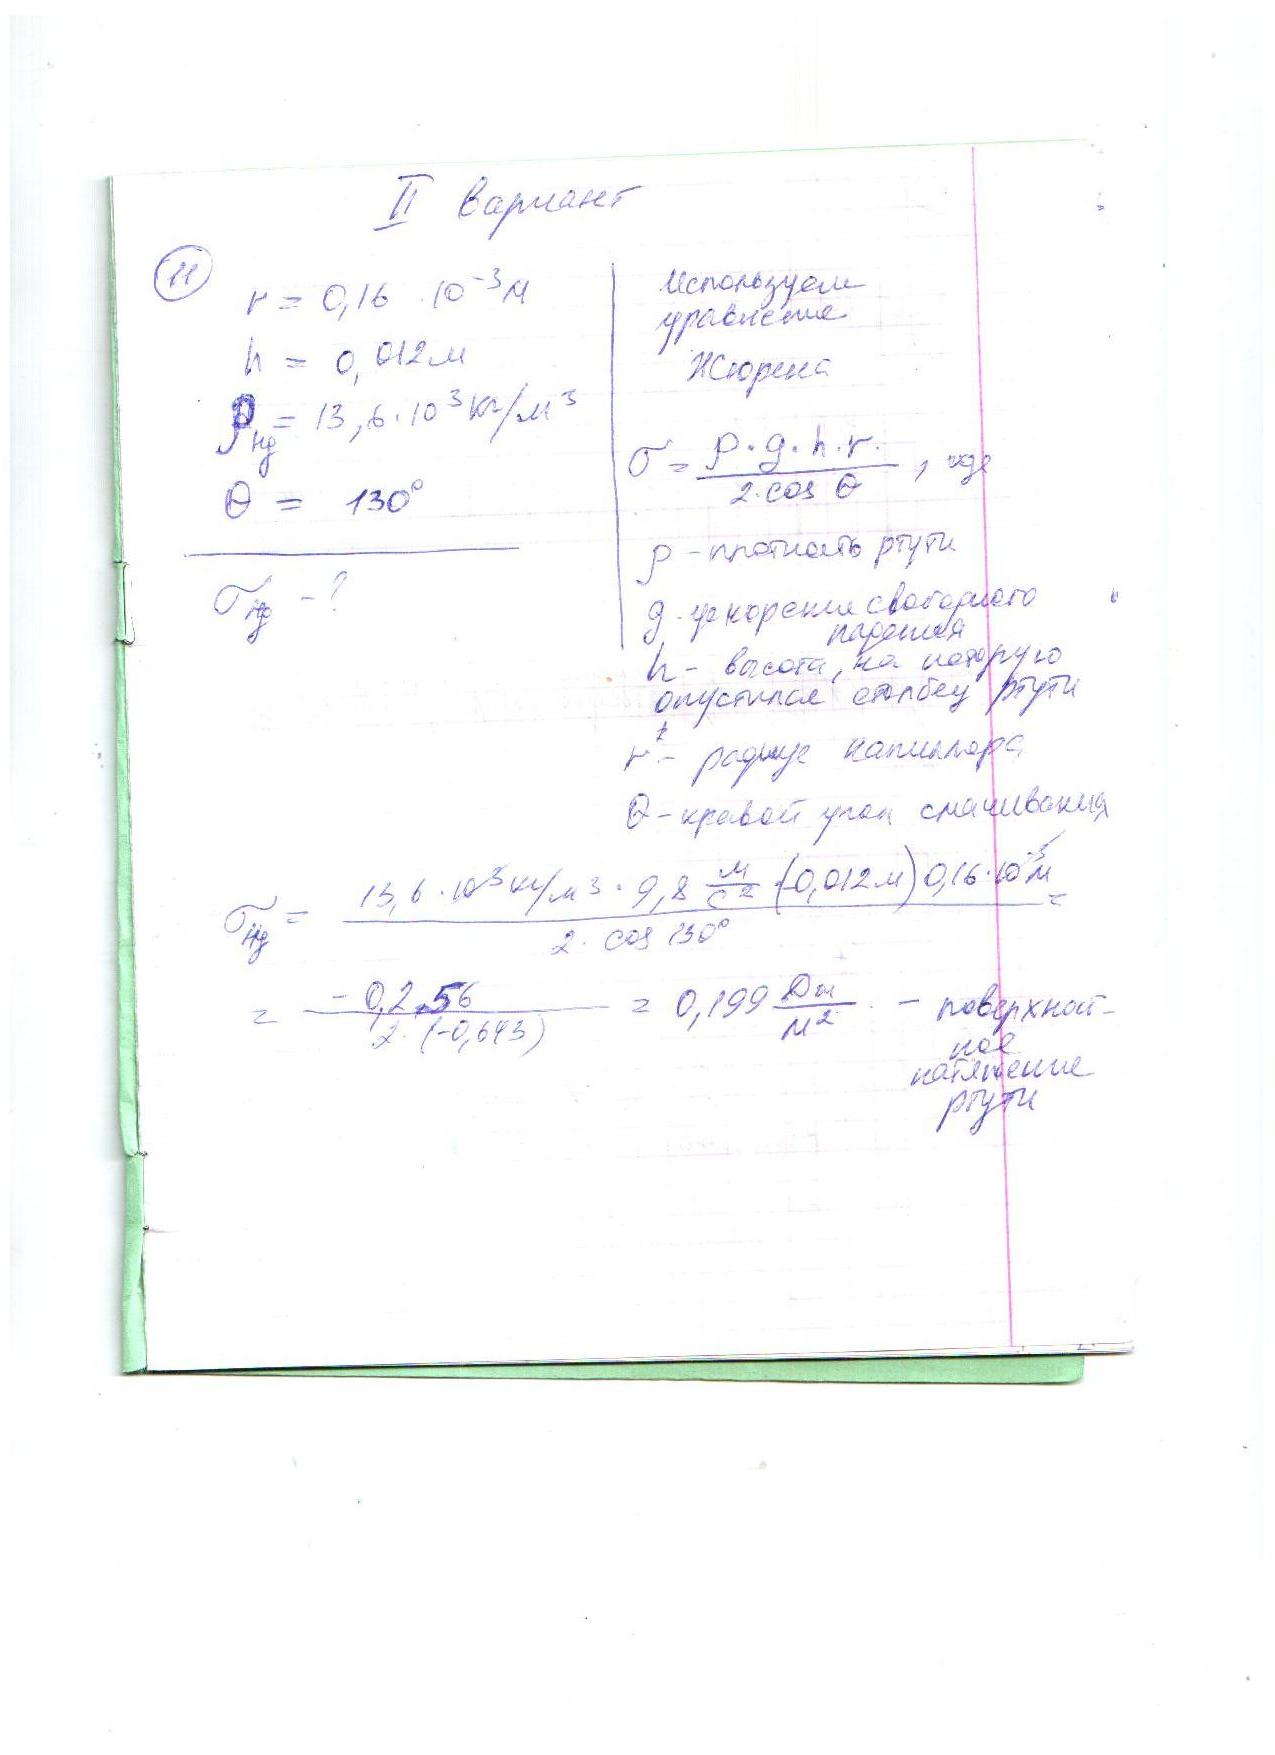 II вариант
11
r = 0,16 · 10⁻³ м
h = 0,012 м
ρHg = 13,6 · 10³ кг/м³
θ = 130°
σHg – ?
Используем
уравнение
Жюрена
σ = ρ · g · h · r / 2 · cos θ , где
ρ – плотность ртути
g – ускорение свободного
падения
h – высота, на которую
опустился столбец ртути
r – радиус капилляра
θ – краевой угол смачивания
σHg = 13,6 · 10³ кг/м³ · 9,8 м/с² (-0,012 м) 0,16 · 10⁻³ м / 2 · cos 130° =
= -0,256 / 2 · (-0,643) = 0,199 Дж/м² – поверхност-
ное
натяжение
ртути